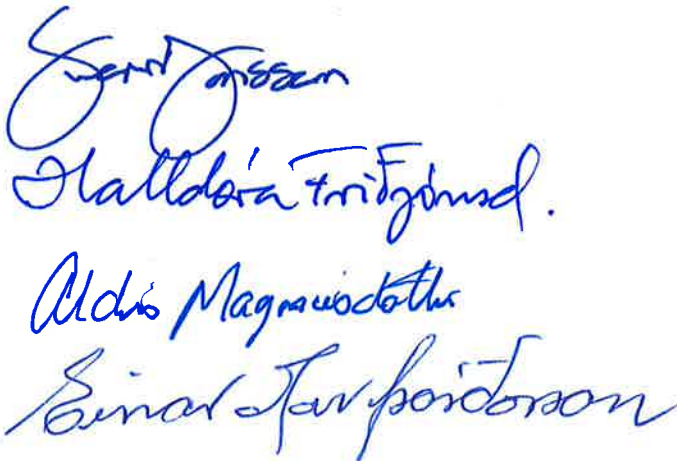 Sverrir Jónsson
Halldóra Friðjónsd.
Aldís Magnúsdóttir
Einar Mar Þórðarson